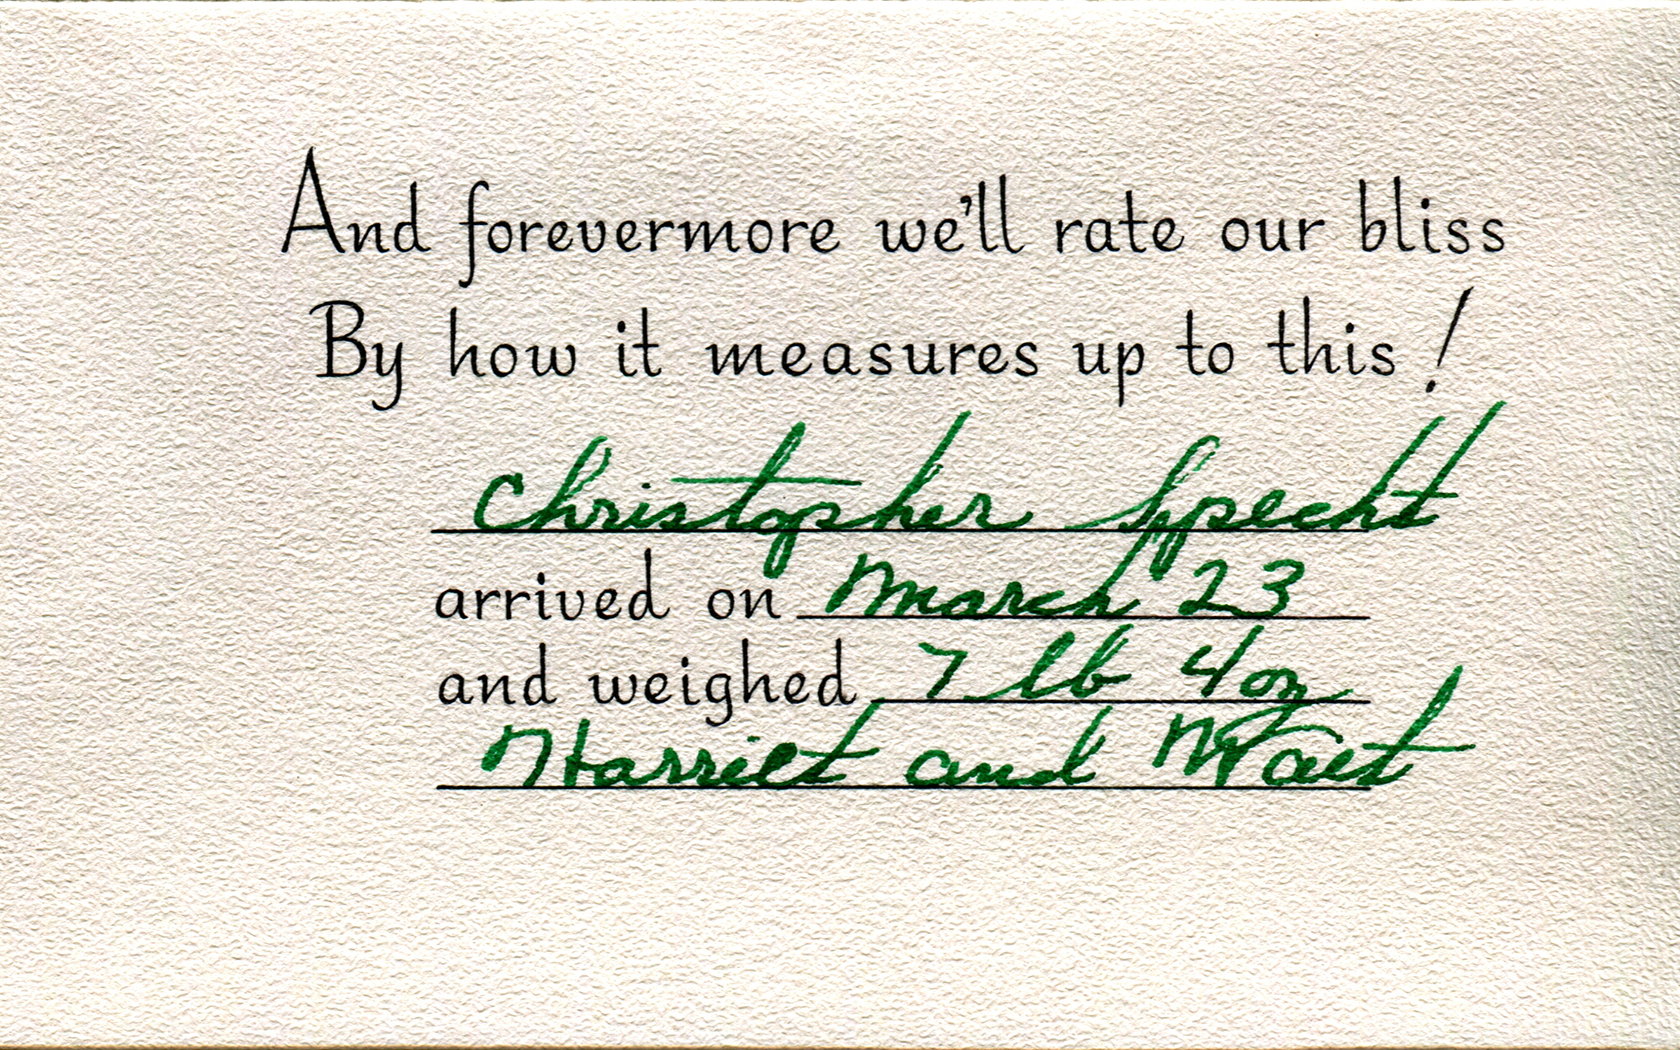 And forevermore we'll rate our bliss
By how it measures up to this!
Christopher Specht
arrived on March 23
and weighed 7 lb 4 oz
Harriet and Walt